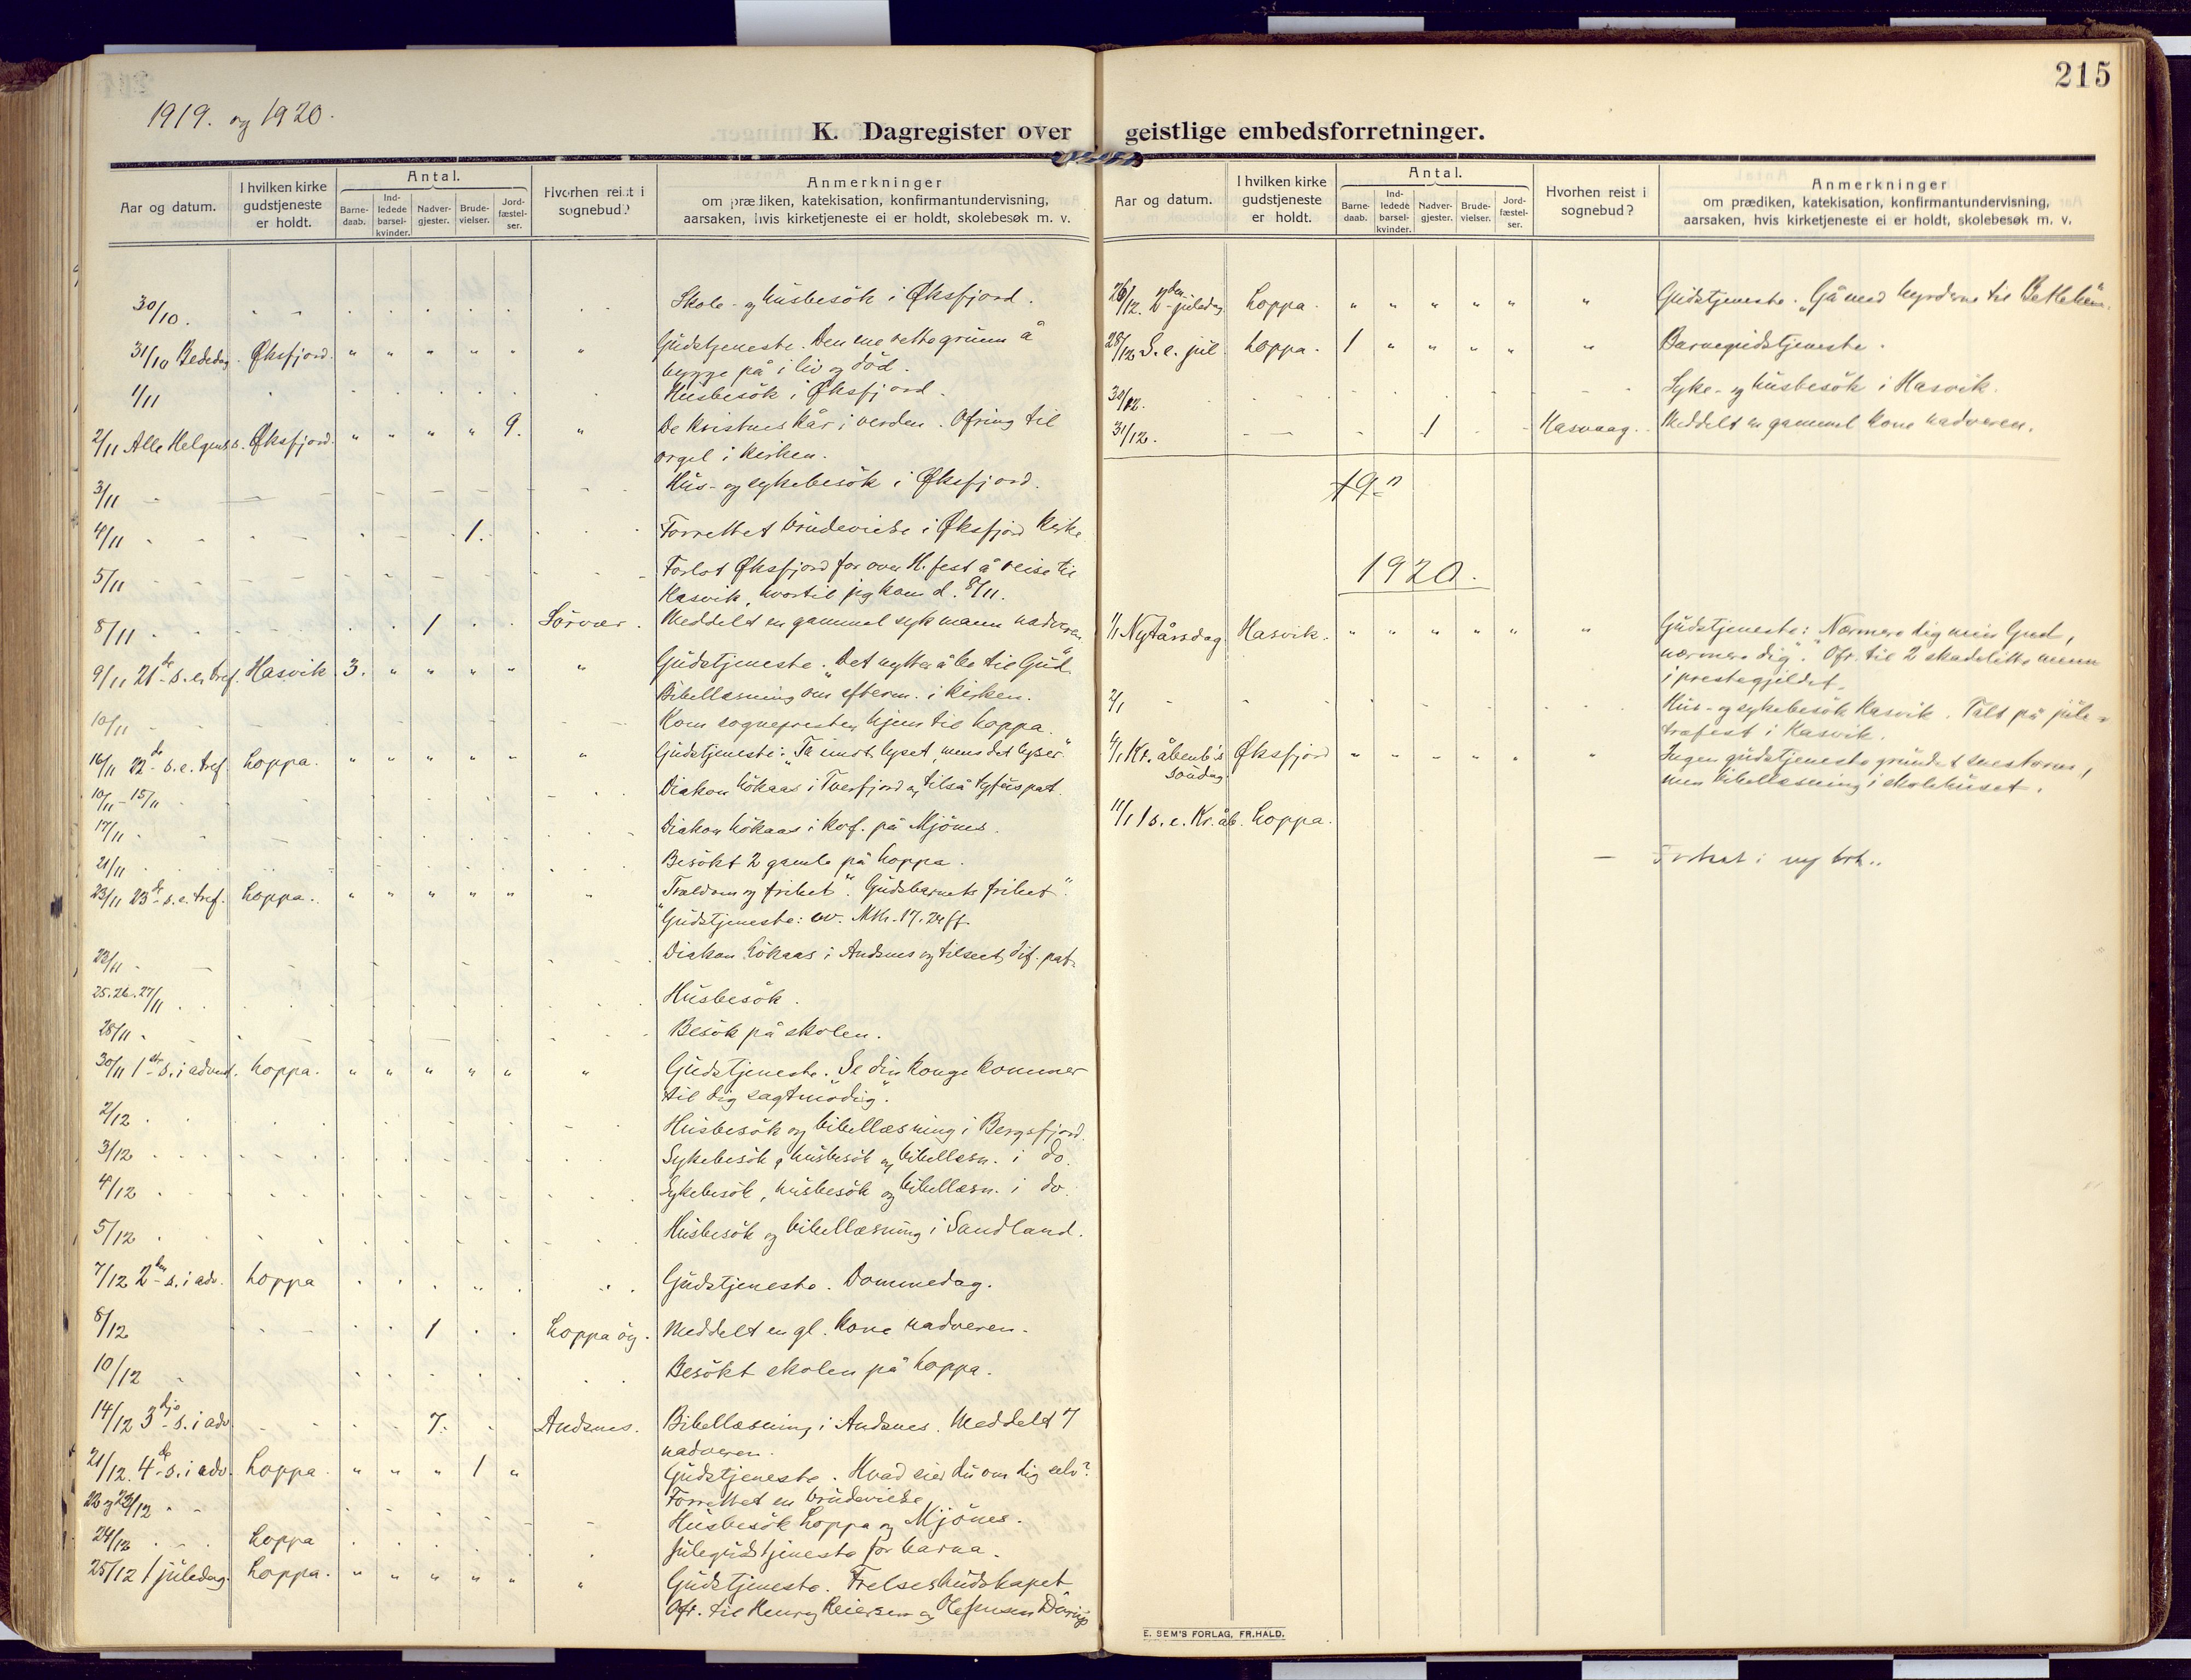 215
1919. og 1920.
K. Dagregister over geistlige embedsforretninger.
Aar og datum. I hvilken kirke gudstjeneste er holdt. Antal. Barnedaab. Indledede barselkvinder. Nadvergjester. Brudevielser. Jordfæstelser. Hvorhen reist i sognebud? Anmerkninger om prædiken, katekisation, konfirmantundervisning, aarsaken, hvis kirketjeneste ei er holdt, skolebesøk m. v.
30/10. Skole- og husbesök i Øksfjord.
31/10 Bededag. Øksfjord. " " " " " " Gudstjeneste. Den ene rette grunn å
bygge på i liv og död.
1/11 Husbesök i Øksfjord.
2/11 Alle Helgens s. Øksfjord. " " " " 9. " De kristnes kår i verden. Ofring til
orgel i kirken.
3/11 Hus- og sykebesök i Øksfjord.
4/11 1. Forrettet brudevielse i Øksfjord kirke
5/11 Forlot Øksfjord for over H.fest å reise til
Hasvik, hvortil jeg kom d. 8/11.
8/11 1 Sörvær. Meddelt en gammel syk mann nadveren
9/11 21de s. e. tref. Hasvik 3. " " " " " Gudstjeneste. "Det nytter å be til Gud."
Bibellæsning om efterm. i kirken.
10/11 Kom sognepresten hjem til Loppa.
16/11 22de s. e. tref. Loppa. " " " " " " Gudstjeneste: "Ta imot lyset, mens det lyser"
10/11 - 15/11 Diakon Lökaas i Tverfjord og tilså tyfuspat.
17/11. Diakon Lökaas i kof. på Mjönes.
21/11 Besökt 2 gamle på Loppa.
23/11 23de s. e. tref. Loppa. " " " " " " "Trældom og frihet". Gudsbarnets frihet".
Gudstjeneste: ov. Mth. 17. 24 ff.
23/11. Diakon Lökaas i Andsnes og tilseet dif. pat.
25. 26. 27/11 Husbesök.
28/11. Besök på skolen.
30/11 1ste s. i advent. Loppa. " " " " " " Gudstjeneste. Se din konge kommer
til dig sagtmodig".
2/12 Husbesök og bibellæsning i Bergsfjord.
3/12 Sykebesök, husbesök og bibellæsn. i do.
4/12 Sykebesök, husbesök og bibellæsn. i do.
5/12 Husbesök og bibellæsning i Sandland.
7/12 2den s. i adv. Loppa Gudstjeneste. Dommedag.
8/12 1 Loppa öy. Meddelt en gl. kone nadveren.
10/12 Besökt skolen på Loppa.
14/12 3dje s. i adv. 7. Andsnes. Bibellæsning i Andsnes. Meddelt 7
nadveren.
21/12. 4de s. i adv. Loppa. " " " 1 " Gudstjeneste. Hvad sier du om dig selv?
Forrettet en brudevielse
22 og 23/12 Husbesök Loppa og Mjönes.
24/12 Loppa Julegudstjeneste for barna.
25/12 1 juledag. Loppa. " " " " " " Gudstjeneste. Frelsesbudskapet
Ofr. til Henry Reiersen og Ole Jensen
Aar og datum. I hvilken kirke gudstjeneste er holdt. Antal. Barnedaab. Indledede barselkvinder. Nadvergjester. Brudevielser. Jordfæstelser. Hvorhen reist i sognebud? Anmerkninger om prædiken, katekisation, konfirmantundervisning, aarsaken, hvis kirketjeneste ei er holdt, skolebesøk m. v.
26/12. 2den juledag Loppa. " " " " " " Gudstjeneste. "Gå med hyrderne til Betlehem".
28/12 S. e. jul Loppa. 1 " " " " " Barnegudstjeneste.
30/12. Syke- og husbesök i Hasvik.
31/12. 1 Hasvaag. Meddelt en gammel kone nadveren.
1920.
1/1 Nytårsdag Hasvik. " " " " " " Gudstjeneste: "Nærmere dig min Gud,
nærmere dig". Ofr. til 2 skadelitte menn
i prestegjeldet.
2/1 Hus- og sykebesök Hasvik. Talt på jule-
trefest i Hasvik.
4/1 Kr. åbenb's söndag Øksfjord " " " " " " Ingen gudstjeneste grundet snestorm,
men bibellæsning i skolehuset.
11/1 1 s. e. Kr. åb. Loppa.
— Fortsat i ny bok..
E. SEM'S FORLAG, FR.HALD.